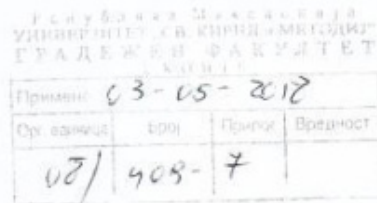 Република Македонија
УНИВЕРЗИТЕТ „СВ. КИРИЛ и МЕТОДИЈ"
ГРАДЕЖЕН ФАКУЛТЕТ
СКОПЈЕ
Примено: 03-05-2012
Орг. единица Број Прилог Вредност
02/ 408- 7